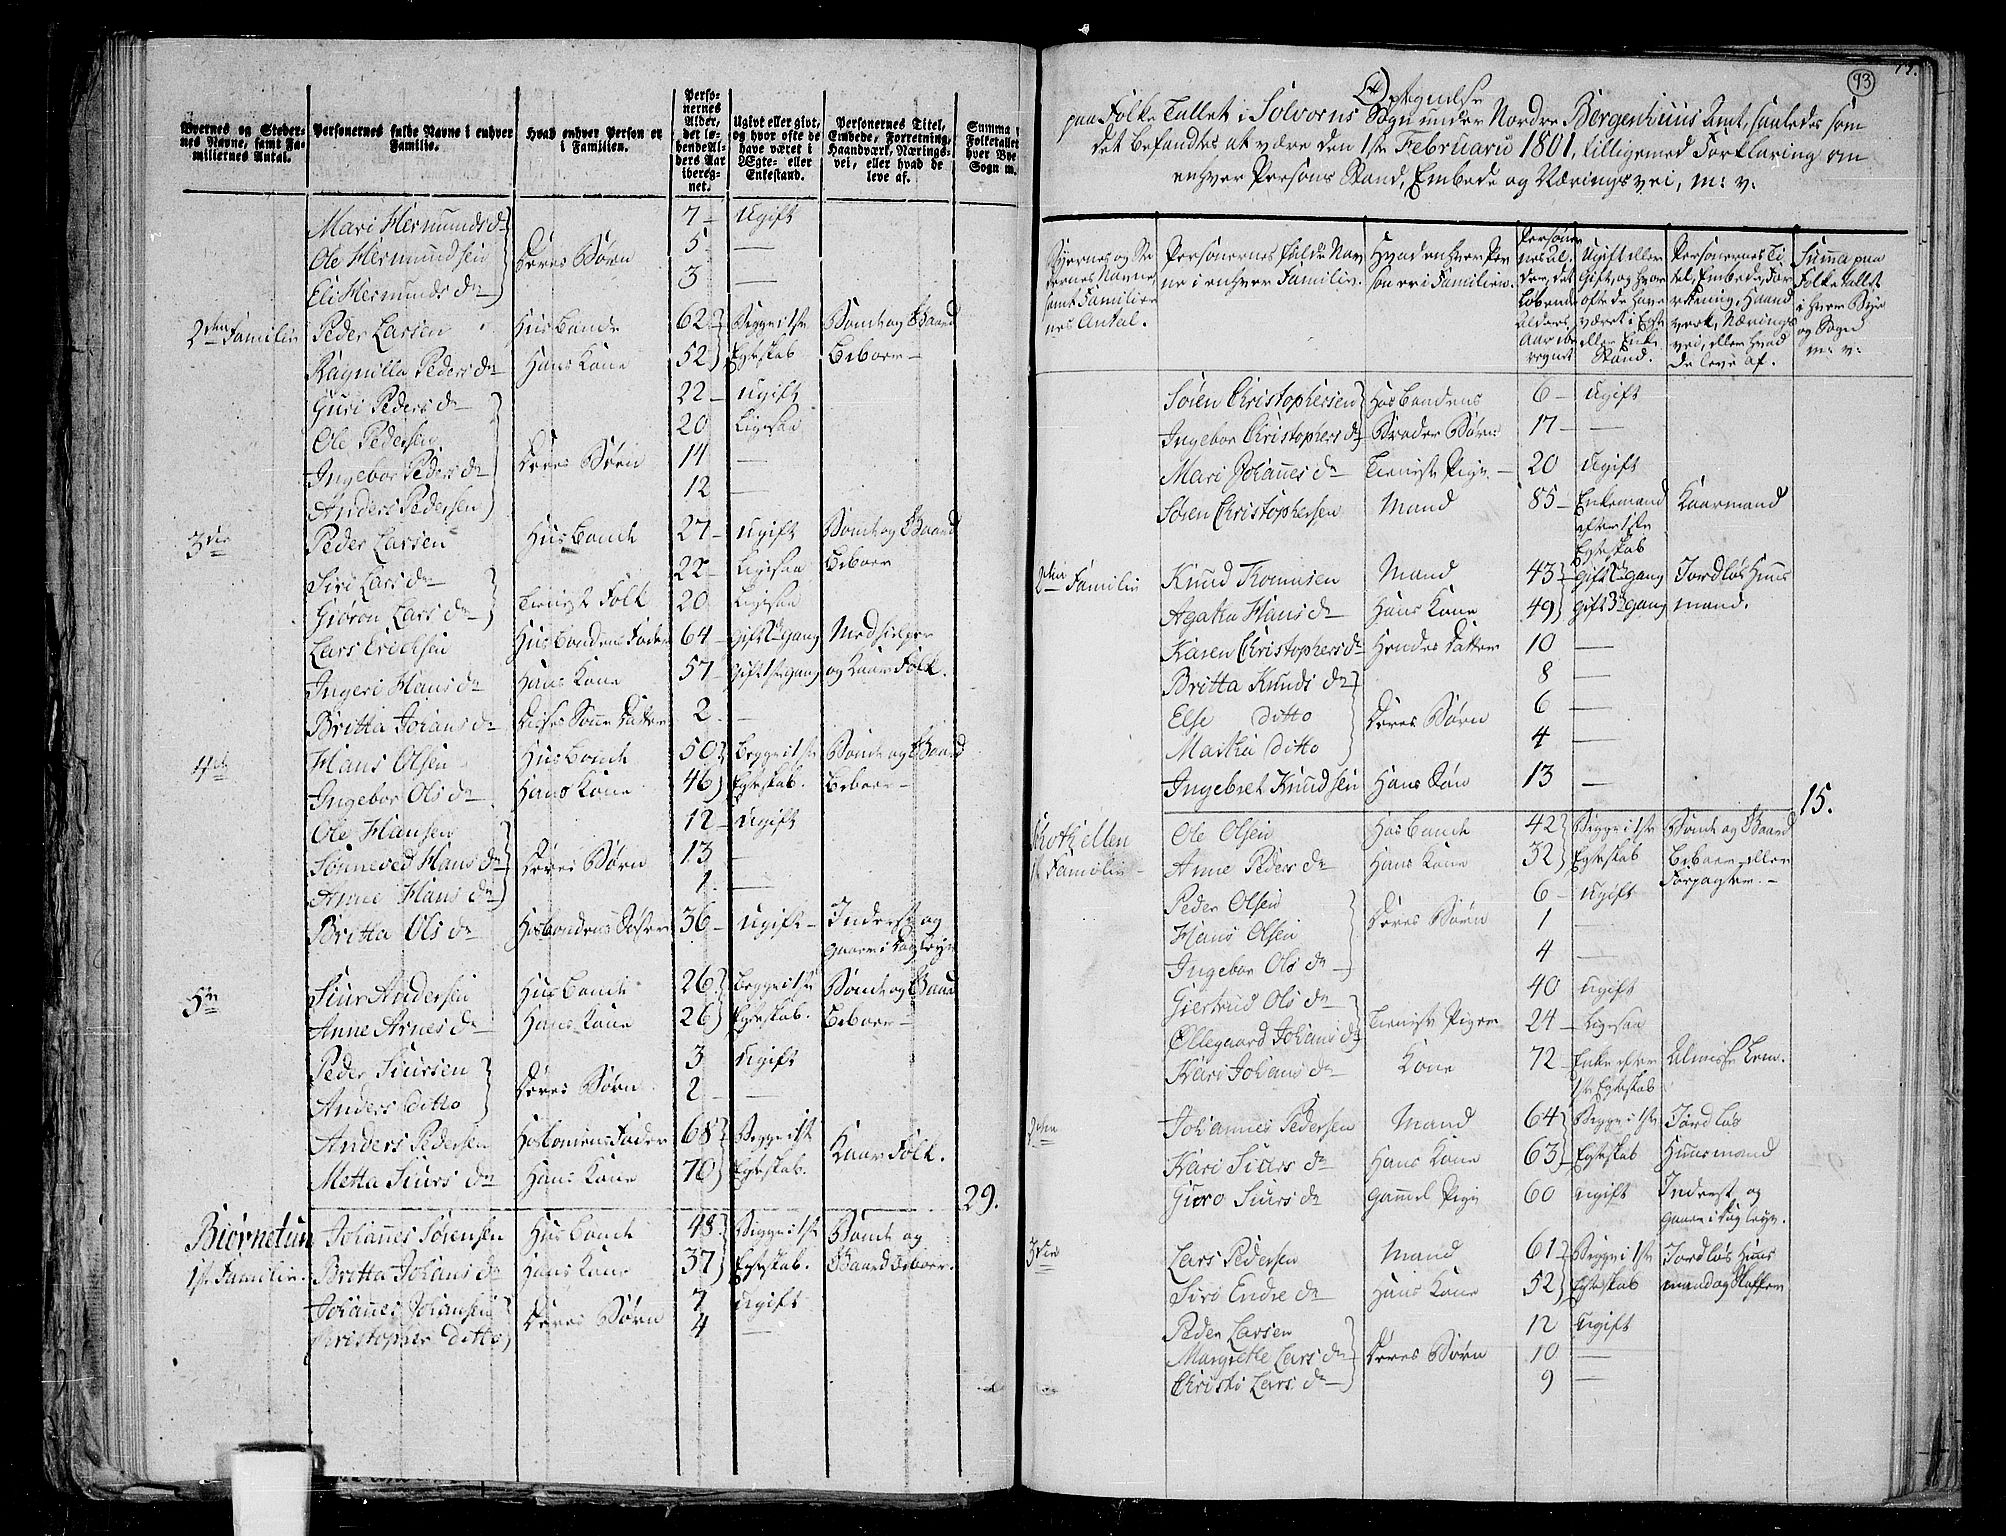 Byernes og Stedernes Navne, samt Familiernes Antal.
Personernes fulde Navne i enhver Familie.
Hvad enhver Person er i Familien.
Personernes Alder, det løbende Alders Aar iberegnet.
Ugivt eller givt, og hvor ofte de have været i Ægte- eller Enkestand.
Personernes Titel, Embede, Forretning, Haandværk, Næringsvei, eller hvad de leve af.
Mari Hermunds dr 7 – Ugift
Ole Hermundsen Deres Børn 5 —
Eli Hermunds dr 3 —
2den Familie Peder Larsen Husbonde 62 Begge i 1ste Bonde og Gaard
Ragnilla Peders dr Hans Kone 52 Egteskab Beboer –
Guri Peders dr 22 – Ugift
Ole Pedersen 20 Ligesaa
Ingebor Peders dr Deres Børn 14 —
Anders Pedersen 12 —
3die Peder Larsen Husbonde 27 – Ugift Bonde og Gaard
Siri Lars dr 22 – Ligesaa Beboer
Giøron Lars dr Tieneste Folk 20 Ligesaa
Lars Erichsen Husbondens Fader 64 – Gift 2n gang Medhielper
Ingeri Hans dr Hans Kone 57 Gift 1ste gang og Kaar Folk.
Britta Johans dr Disses Sønne Datter 2 –
4de Hans Olsen Husbonde 50 Begge i 1ste Bonde og Gaard
Ingebor Ols dr Hans Kone 46 Egteskab. Beboer –
Ole Hansen 12 – Ugift
Sønneved Hans dr Deres Børn 13 —
Anne Hans dr 1. —
Britta Ols dr Hosbondens Søster 36 – Ugift – Inderst og
gaaer i Dagleye
5te Siur Andersen Husbonde 26 Begge i 1ste Bonde og Gaard
Anne Arnes dr Hans Kone 26 Egteskab. Beboer –
Peder Siursen 3 Ugift
Anders Ditto Deres Børn 2 – —
Anders Pedersen Hosbondens Fader 68 Begge i 1ste Kaar Folk.
Metta Siurs dr Hans Kone 70 Egteskab.
29.
Biørnetun Johannes Sørensen Husbonde 48 Begge i 1ste Bonde og
1ste Familie. Britta Johans dr Hans Kone 37 Egteskab. Gaard Beboer.
Johannes Johansen Deres Børn 7 Ugift
Christopher Ditto 4 —
93
Optegnelse
paa Folke Tallet i Solvorns Sogn under Nordre Bergenhuus Amt, saaledes som
det befandtes at være den 1ste Februarii 1801, tilligemed Forklaring om
enhver Persons Stand, Embede og Næringsvei, m: v.
Byernes og Stedernes Navne, samt Familiernes Antal.
Personernes Fulde Navne i enhver Familie.
Hvad enhver Person er i Familien.
Personernes Alder, det Løbende Alders Aar iberegnet
Ugift eller Gift, og hvor ofte de have været i Egte eller Enke Stand.
Personernes Titel, Embede, Forretning, Haandverk, Nærings vei, eller hvad de leve af.
Summa paa Folketallet i hver Bye og Sogn m: v:
Søren Christophersen Hosbondens 6 – Ugift
Ingebor Christophers dr Broder Børn 17 – —
Mari Johannes dr Tieneste Pige – 20 Ugift
Søren Christophersen Mand 85 – Enkemand Kaarmand
efter 1ste
Egteskab
2den Familie Knud Thomesen Mand 43 Gift 2n gang Jordløs Huus
Agatha Hans dr Hans Kone 49 Gift 3n gang mand.
Karen Christophers dr Hendes Datter 10 —
Britta Knuds dr 8 —
Else ditto Deres Børn 6 —
Martha ditto 4 —
Ingebret Knudsen Hans Søn 13 —
15.
Ole Olsen Hosbonde 42 Begge i 1ste Bonde og Gaard
1ste Familie – Anne Peders dr Hans Kone 32 Egteskab Beboer eller
Forpagter. –
Peder Olsen 6 – Ugift
Hans Olsen Deres Børn 1 —
Ingebor Ols dr 4 —
Giertrud Ols dr 40 Ugift
Ollegaard Johans dr Tieneste Piger 24 – Ligesaa
Kari Johans dr Kone 72 – Enke efter Almisse Lem.
1ste Egteskab
2den Johannes Pedersen Mand 64 Begge i 1ste Jordløs
Kari Siurs dr Hans Kone 63 Egteskab Huusmand
Guro Siurs dr gammel Pige 60 Ugift Inderst og
gaaer i Dag leye.
3die Lars Pedersen Mand 61 Begge i 1ste Jordløs Huus
Siri Endre dr Hans Kone 52 Egteskab mand og
Peder Larsen 12 Ugift
Margrethe Lars dr Deres Børn 10 —
Christi Lars dr 9 —